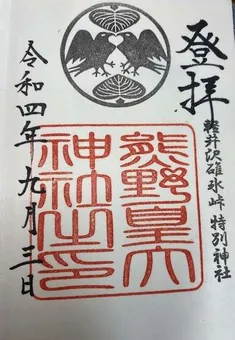 登拝
軽井沢碓氷峠 特別神社
熊野皇大
神社之印
令和四年九月三日